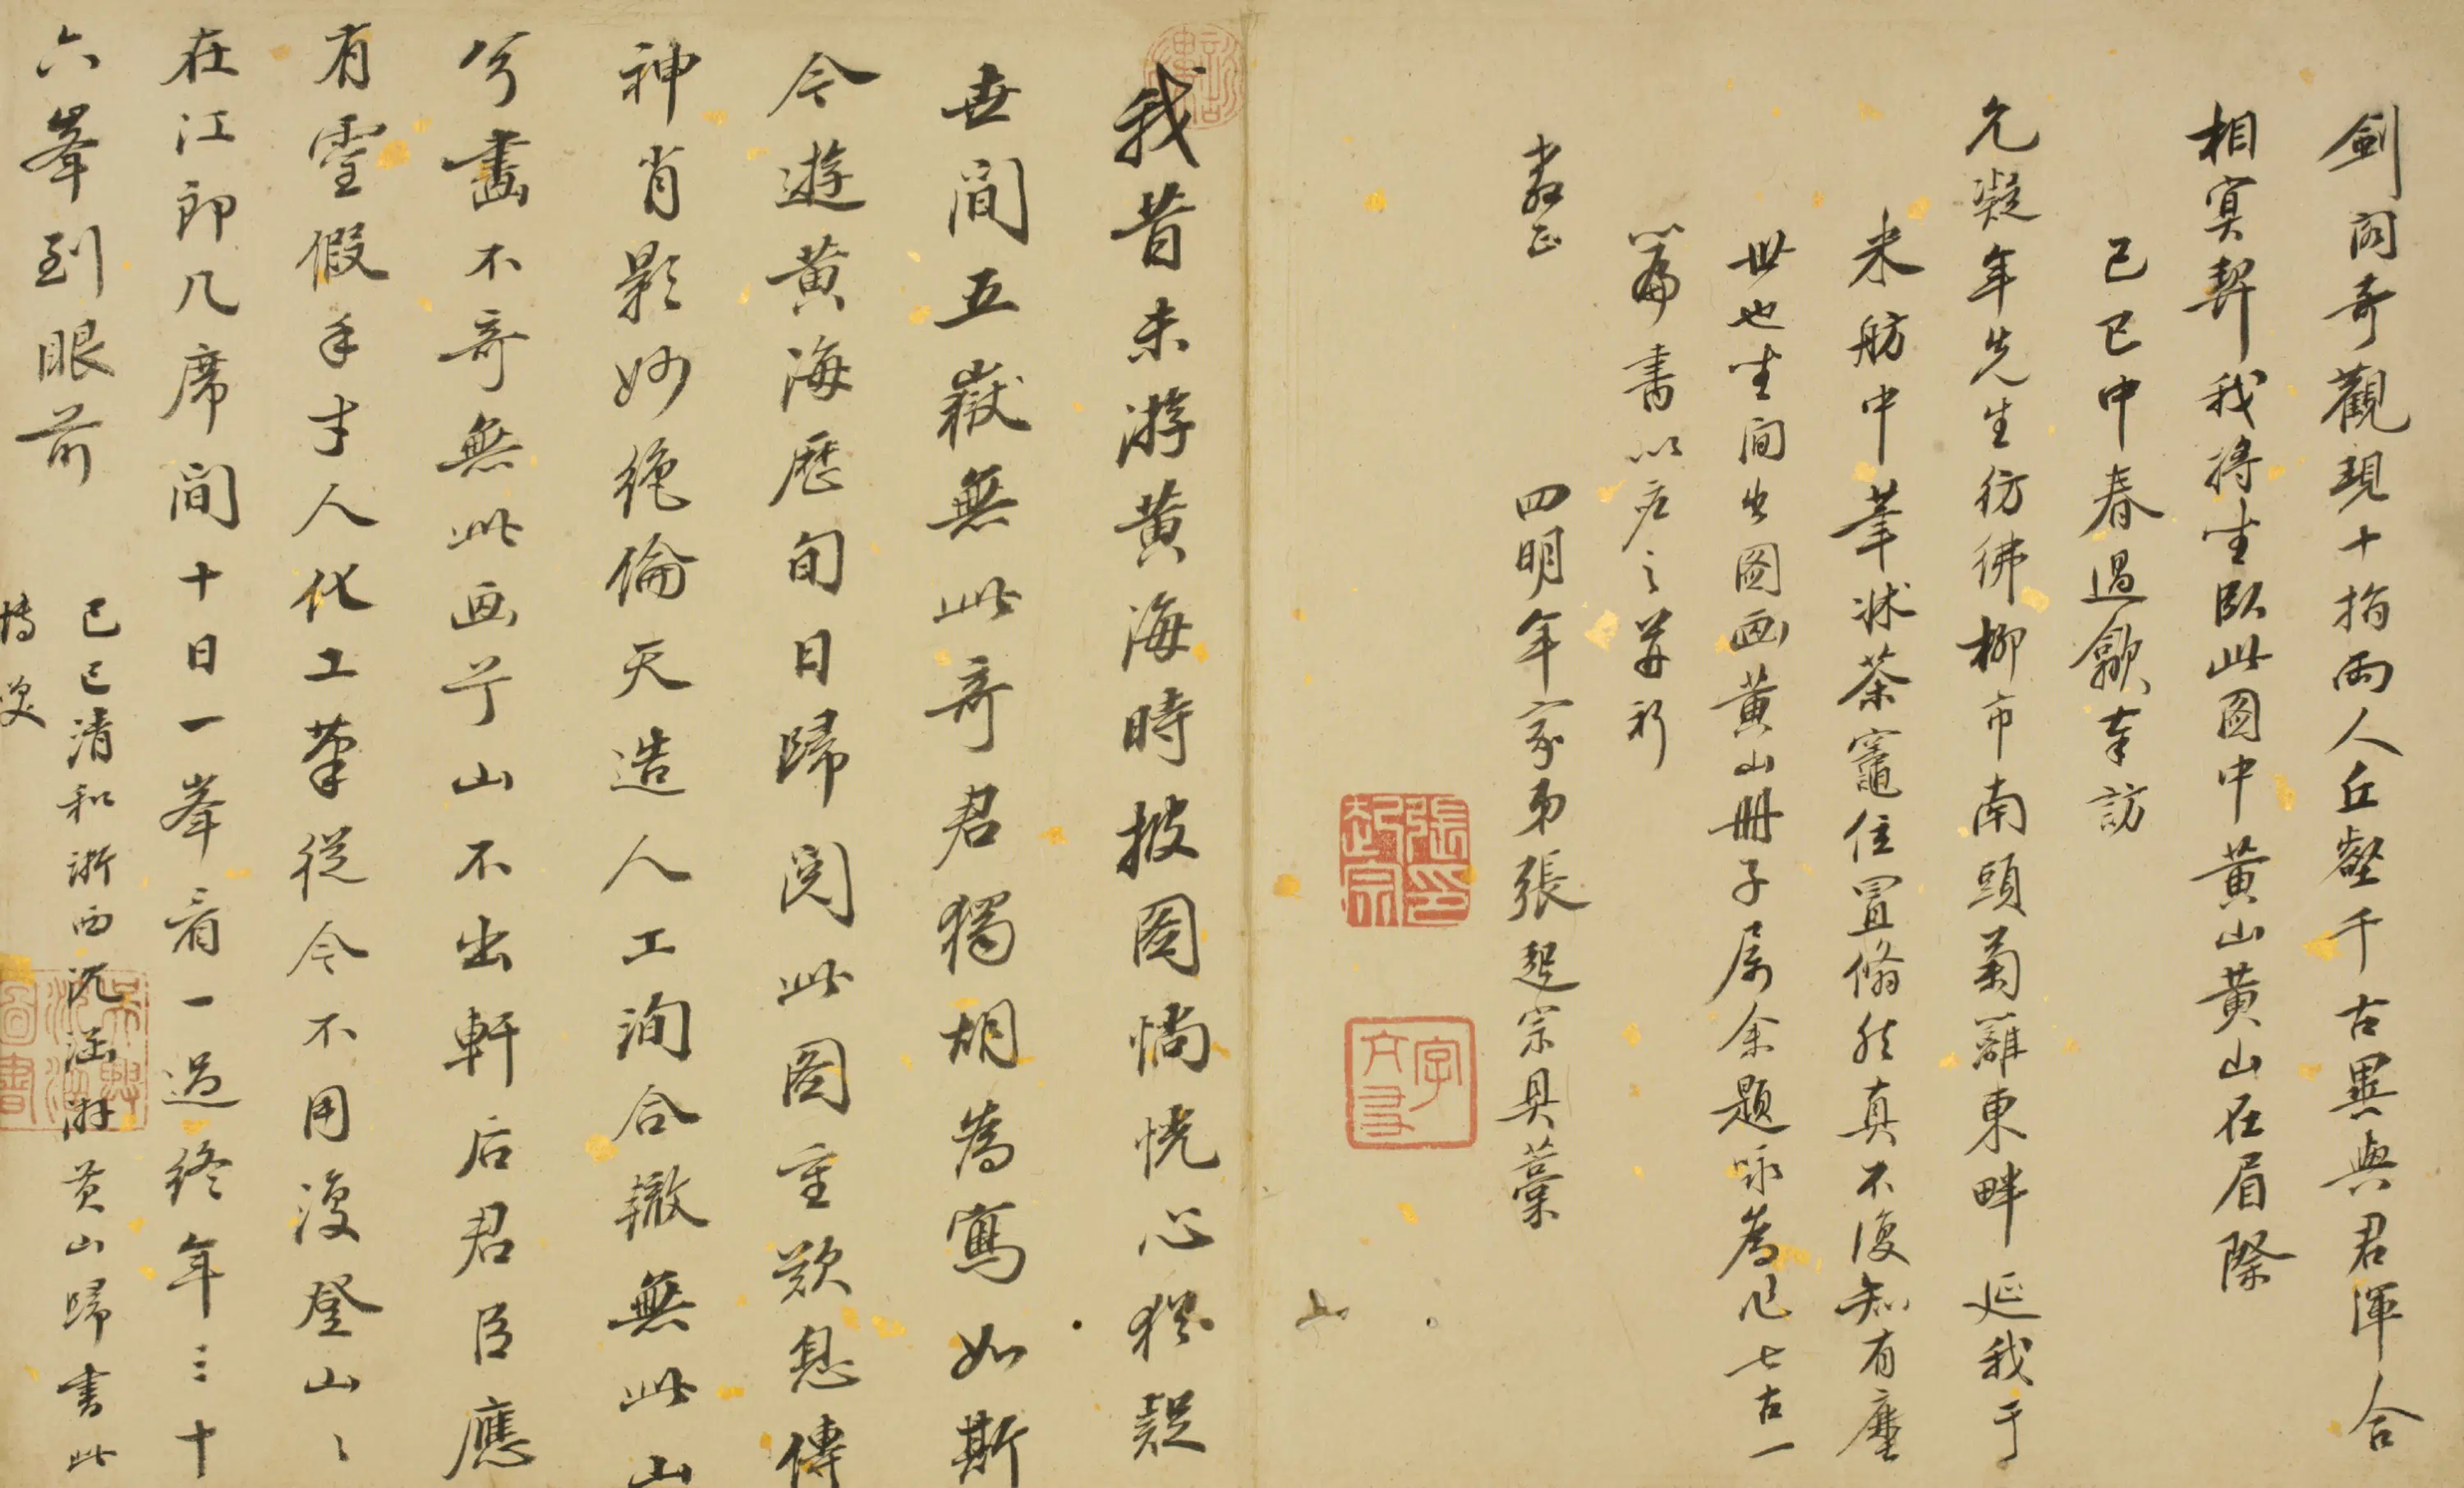 劍閣奇觀現十指兩人丘壑千古異與君渾合
相冥契我將坐臥此圖中黃山黃山在眉際
己巳中春過歙奉訪
允凝年先生彷彿柳市南頭菊籬東畔延我于
米舫中筆牀茶竈位置翛然真不復知有塵
世也坐間出圖画黃山冊子屬余題咏為作七古一
篇書以應之并祈
教正
四明年家弟張起宗具藁
我昔未游黃海時披圖惝恍心猶疑
世間五嶽無此奇君獨胡為寫如斯
今遊黃海歷旬日歸閱此圖重歎息傳
神肖影妙絕倫天造人工洵合轍無此山
兮畵不奇無此画兮山不出軒后君臣應
有靈假手才人化工筆從今不用復登山〻
在江郎几席間十日一峯看一過終年三十
六峯到眼前
己巳清和浙西沉涵游黃山歸書此
博笑
張起宗印
字文友
吳興沈涵圖書